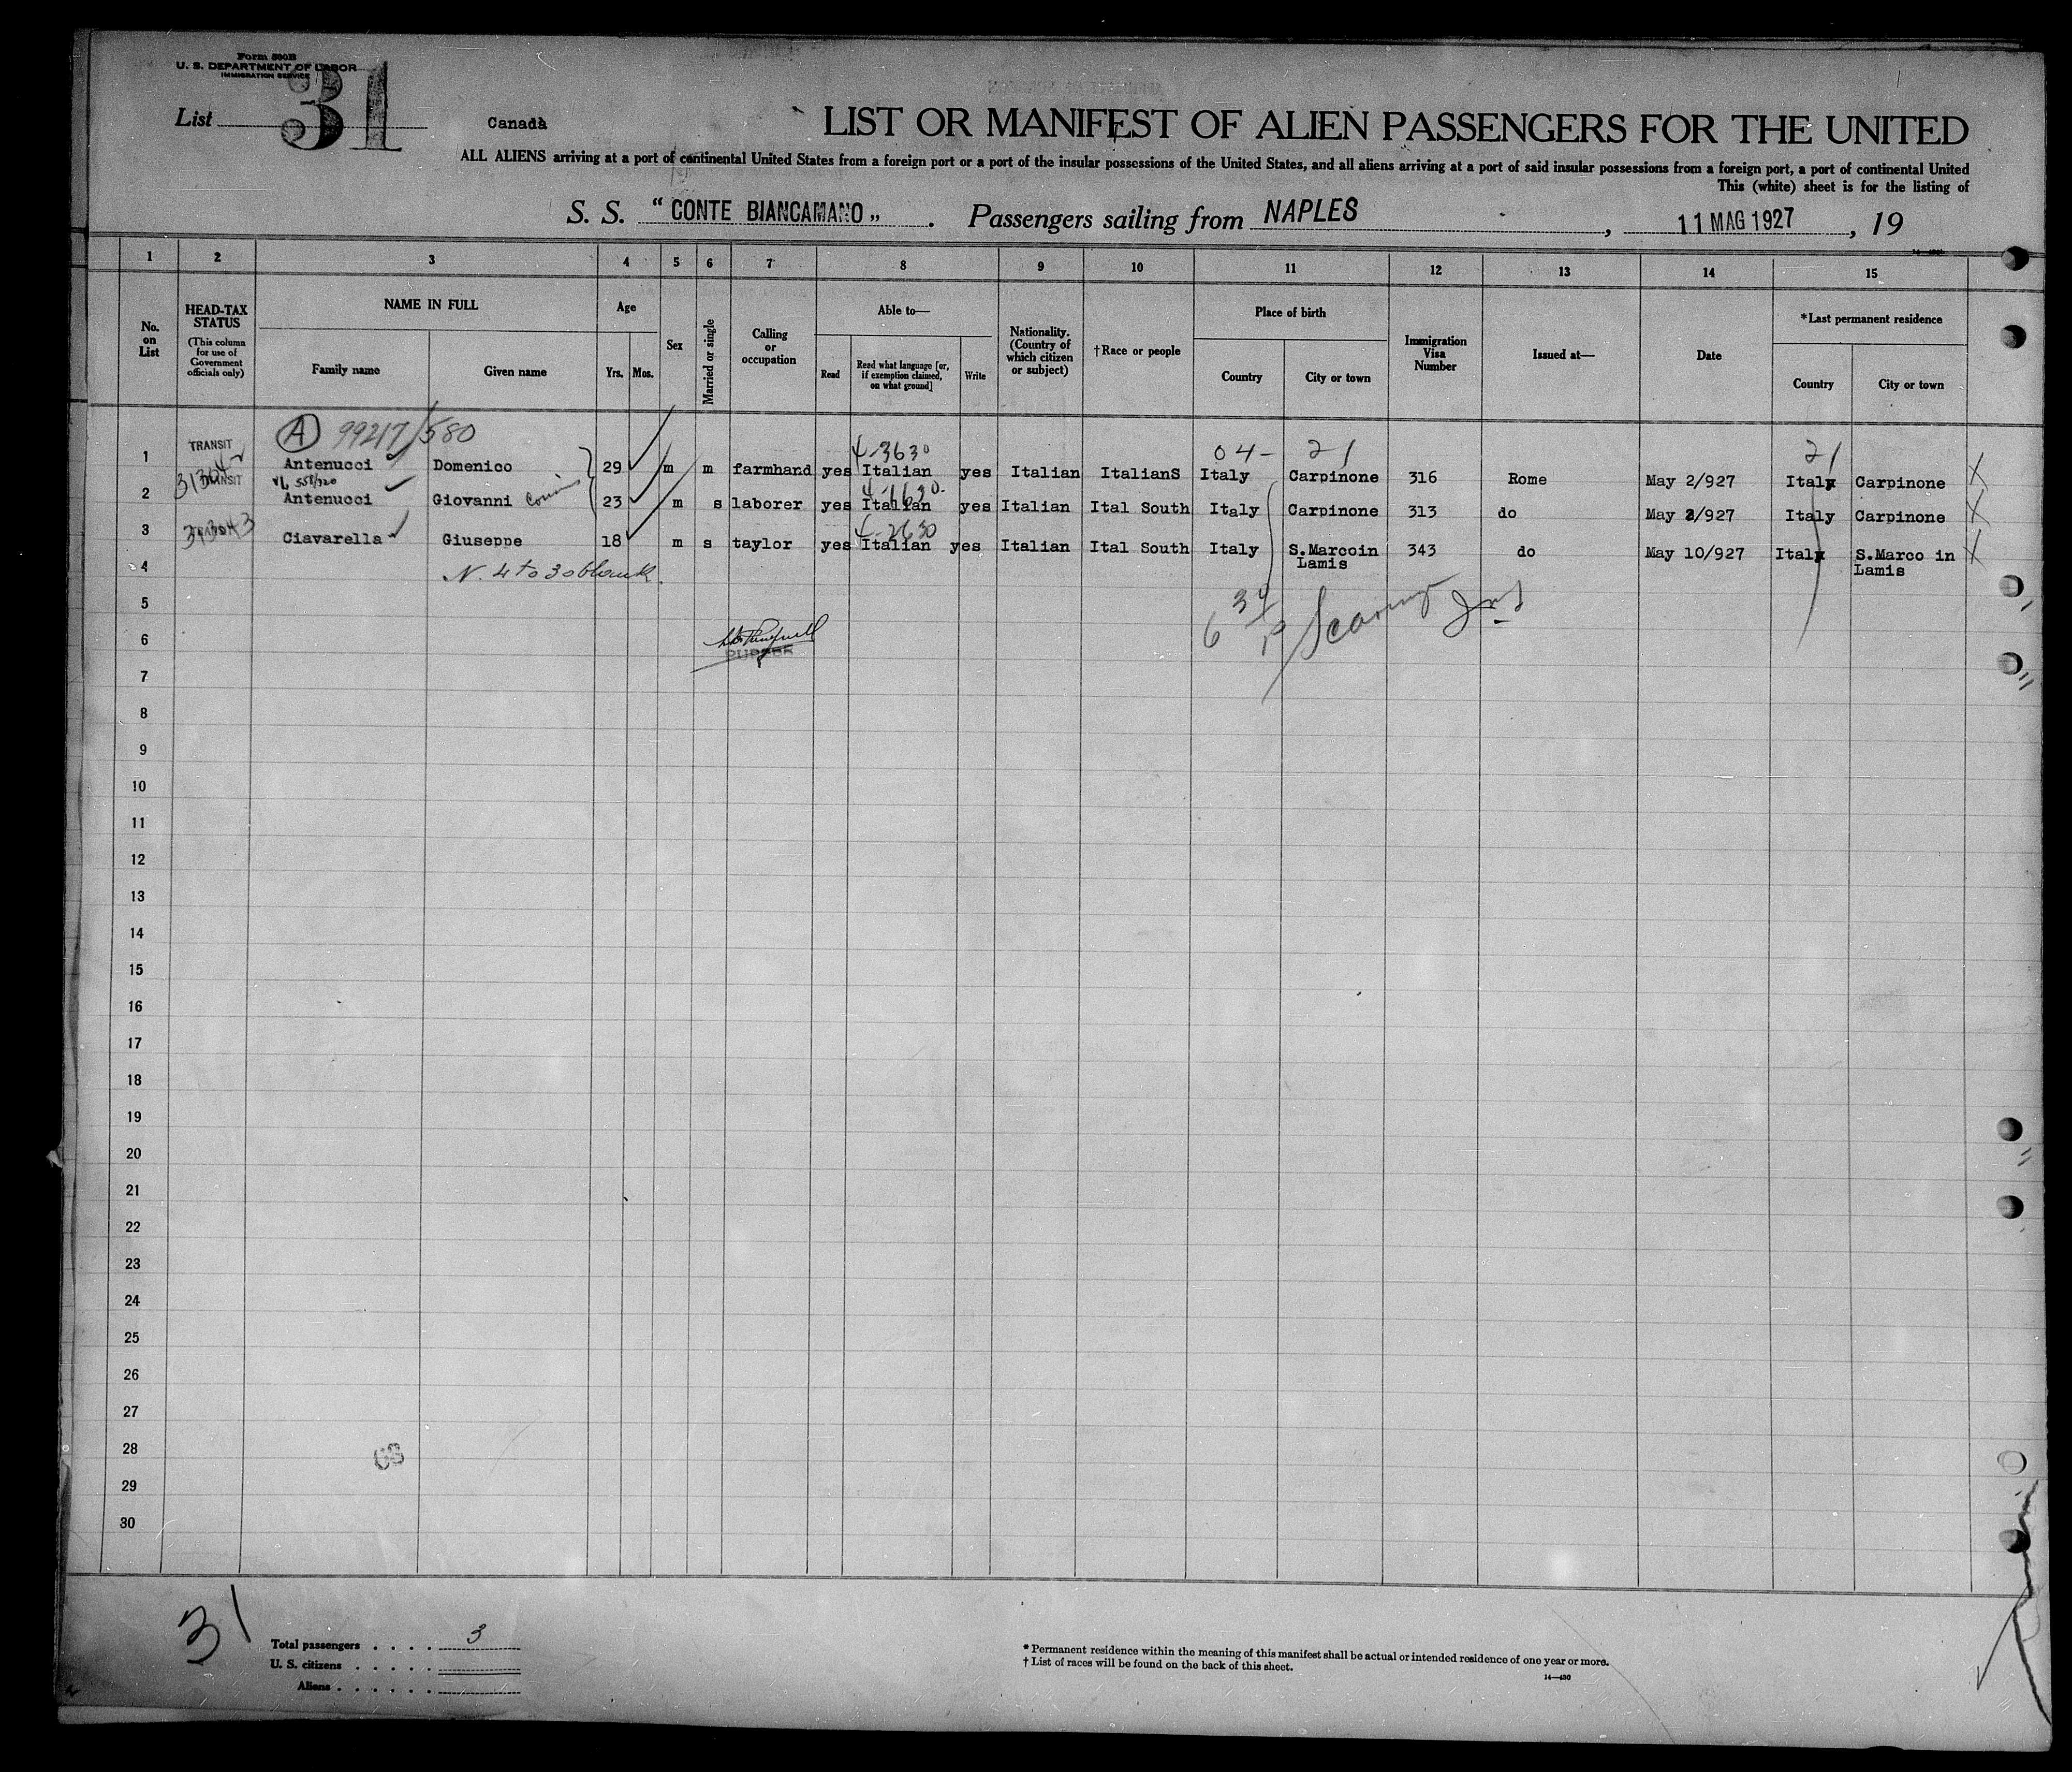 Form 500B
U. S. DEPARTMENT OF LABOR
IMMIGRATION SERVICE
List 31
Canada
LIST OR MANIFEST OF ALIEN PASSENGERS FOR THE UNITED
ALL ALIENS arriving at a port of continental United States from a foreign port or a port of the insular possessions of the United States, and all aliens arriving at a port of said insular possessions from a foreign port, a port of continental United
This (white) sheet is for the listing of
S. S. "CONTE BIANCAMANO". Passengers sailing from NAPLES, 11 MAG 1927, 19
1 2 3 4 5 6 7 8 9 10 11 12 13 14 15
No. on List
HEAD-TAX STATUS
(This column for use of Government officials only)
NAME IN FULL
Family name Given name
Age
Yrs. Mos.
Sex
Married or single
Calling or occupation
Able to—
Read
Read what language [or, if exemption claimed, on what ground]
Write
Nationality. (Country of which citizen or subject)
†Race or people
Place of birth
Country City or town
Immigration Visa Number
Issued at—
Date
*Last permanent residence
Country City or town
A 99217/580
4-3630 04- 21 21
1 TRANSIT Antenucci Domenico 29 m m farmhand yes Italian yes Italian ItalianS Italy Carpinone 316 Rome May 2/927 Italy Carpinone
2 TRANSIT Antenucci Giovanni cousin 23 m s laborer yes Italian yes Italian Ital South Italy Carpinone 313 do May 2/927 Italy Carpinone
4-2630
3 Ciavarella Giuseppe 18 m s taylor yes Italian yes Italian Ital South Italy S.Marcoin Lamis 343 do May 10/927 Italy S.Marco in Lamis
4 N. 4 to 30 blank.
5
6
PURSER
7
8
9
10
11
12
13
14
15
16
17
18
19
20
21
22
23
24
25
26
27
28
29
30
31
Total passengers . . . . 3
U. S. citizens . . . . .
Aliens . . . . . .
* Permanent residence within the meaning of this manifest shall be actual or intended residence of one year or more.
† List of races will be found on the back of this sheet.
14—430